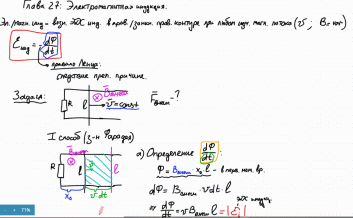 Глава 27: Электромагнитная индукция.
Эл/магн. инд. – возн. ЭДС инд. в пров./замкн. пров. контуре при любом изм. магн. потока (v⃗; B-пог)
ℰинд = -dΦ/dt
правило Ленца:
следствие преп. причине.
Задача:
R
l
⊗ Bвнеш
v⃗=const
F⃗внеш-?
I способ (з-н Фарадея)
R
⊗ Bвнеш
l
l
x₀
v·dt
а) Определение dΦ/dt:
Φ = Bвнеш x₀ l - в нач. мом. вр.
dΦ = Bвнеш · v·dt·l
ЭДС индукц.
⇒ dΦ/dt = v Bвнеш l = |ℰi|
71%